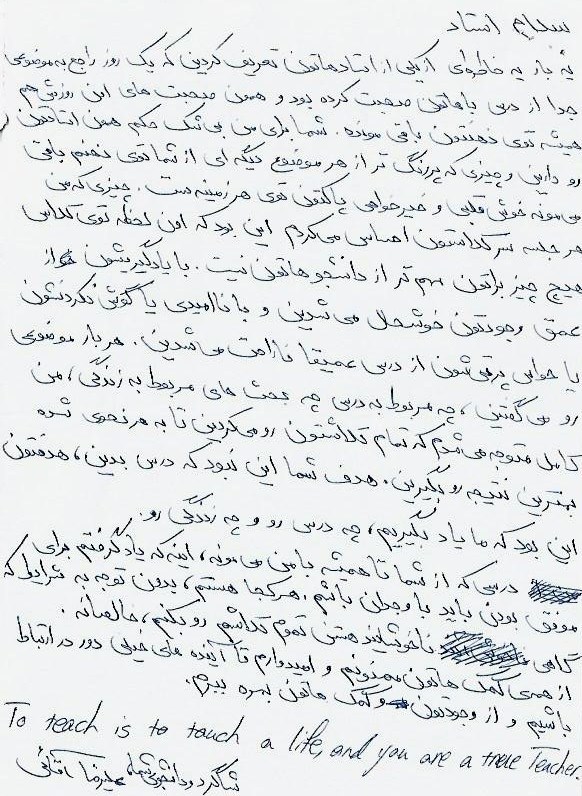 سلام استاد
یه بار یه خاطره‌ای از یکی از استادهاتون تعریف کردین که یک روز راجع به موضوعی
جدا از درس باهاتون صحبت کرده بود و همون صحبت های این روزش هم
همیشه توی ذهنتون باقی مونده. شما برای من بی شک حکم همون استادتون
رو دارین و چیزی که پررنگ تر از هر موضوع دیگه ای از شما توی ذهنم باقی
می مونه خوش قلبی و خیرخواهی پاکتون توی هر زمینه ست. چیزی که من
هر جلسه سر کلاستون احساس می کردم این بود که اون لحظه توی کلاس
هیچ چیز براتون مهم تر از دانشجوهاتون نیست. با یادگیریشون از
عمق وجودتون خوشحال می شدین و با ناامیدی یا گوش نکردنشون
یا حواس پرتی شون از درس عمیقا ناراحت می شدین. هر بار موضوعی
رو می گفتین، چه مربوط به درس چه بحث های مربوط به زندگی، من
کامل متوجه می شدم که تمام تلاشتون رو می کردین تا به هر نحوی شده
بهترین نتیجه رو بگیرین. هدف شما این نبود که درس بدین، هدفتون
این بود که ما یاد بگیریم، چه درس رو و چه زندگی رو.
درسی که از شما تا همیشه با من می مونه، اینه که یاد گرفتم برای
موفق بودن باید با وجدان باشم. هرکجا هستم، بدون توجه به شرایط که
گاهی ناخوشایند هستن تموم تلاشم رو بکنم، خالصانه.
از همه ی کمک هاتون ممنونم و امیدوارم تا آینده های خیلی دور در ارتباط
باشیم و از وجودتون و کمک هاتون بهره ببرم.
To teach is to touch a life, and you are a true Teacher.
شاگرد و دانشجوی شما علیرضا آقائی